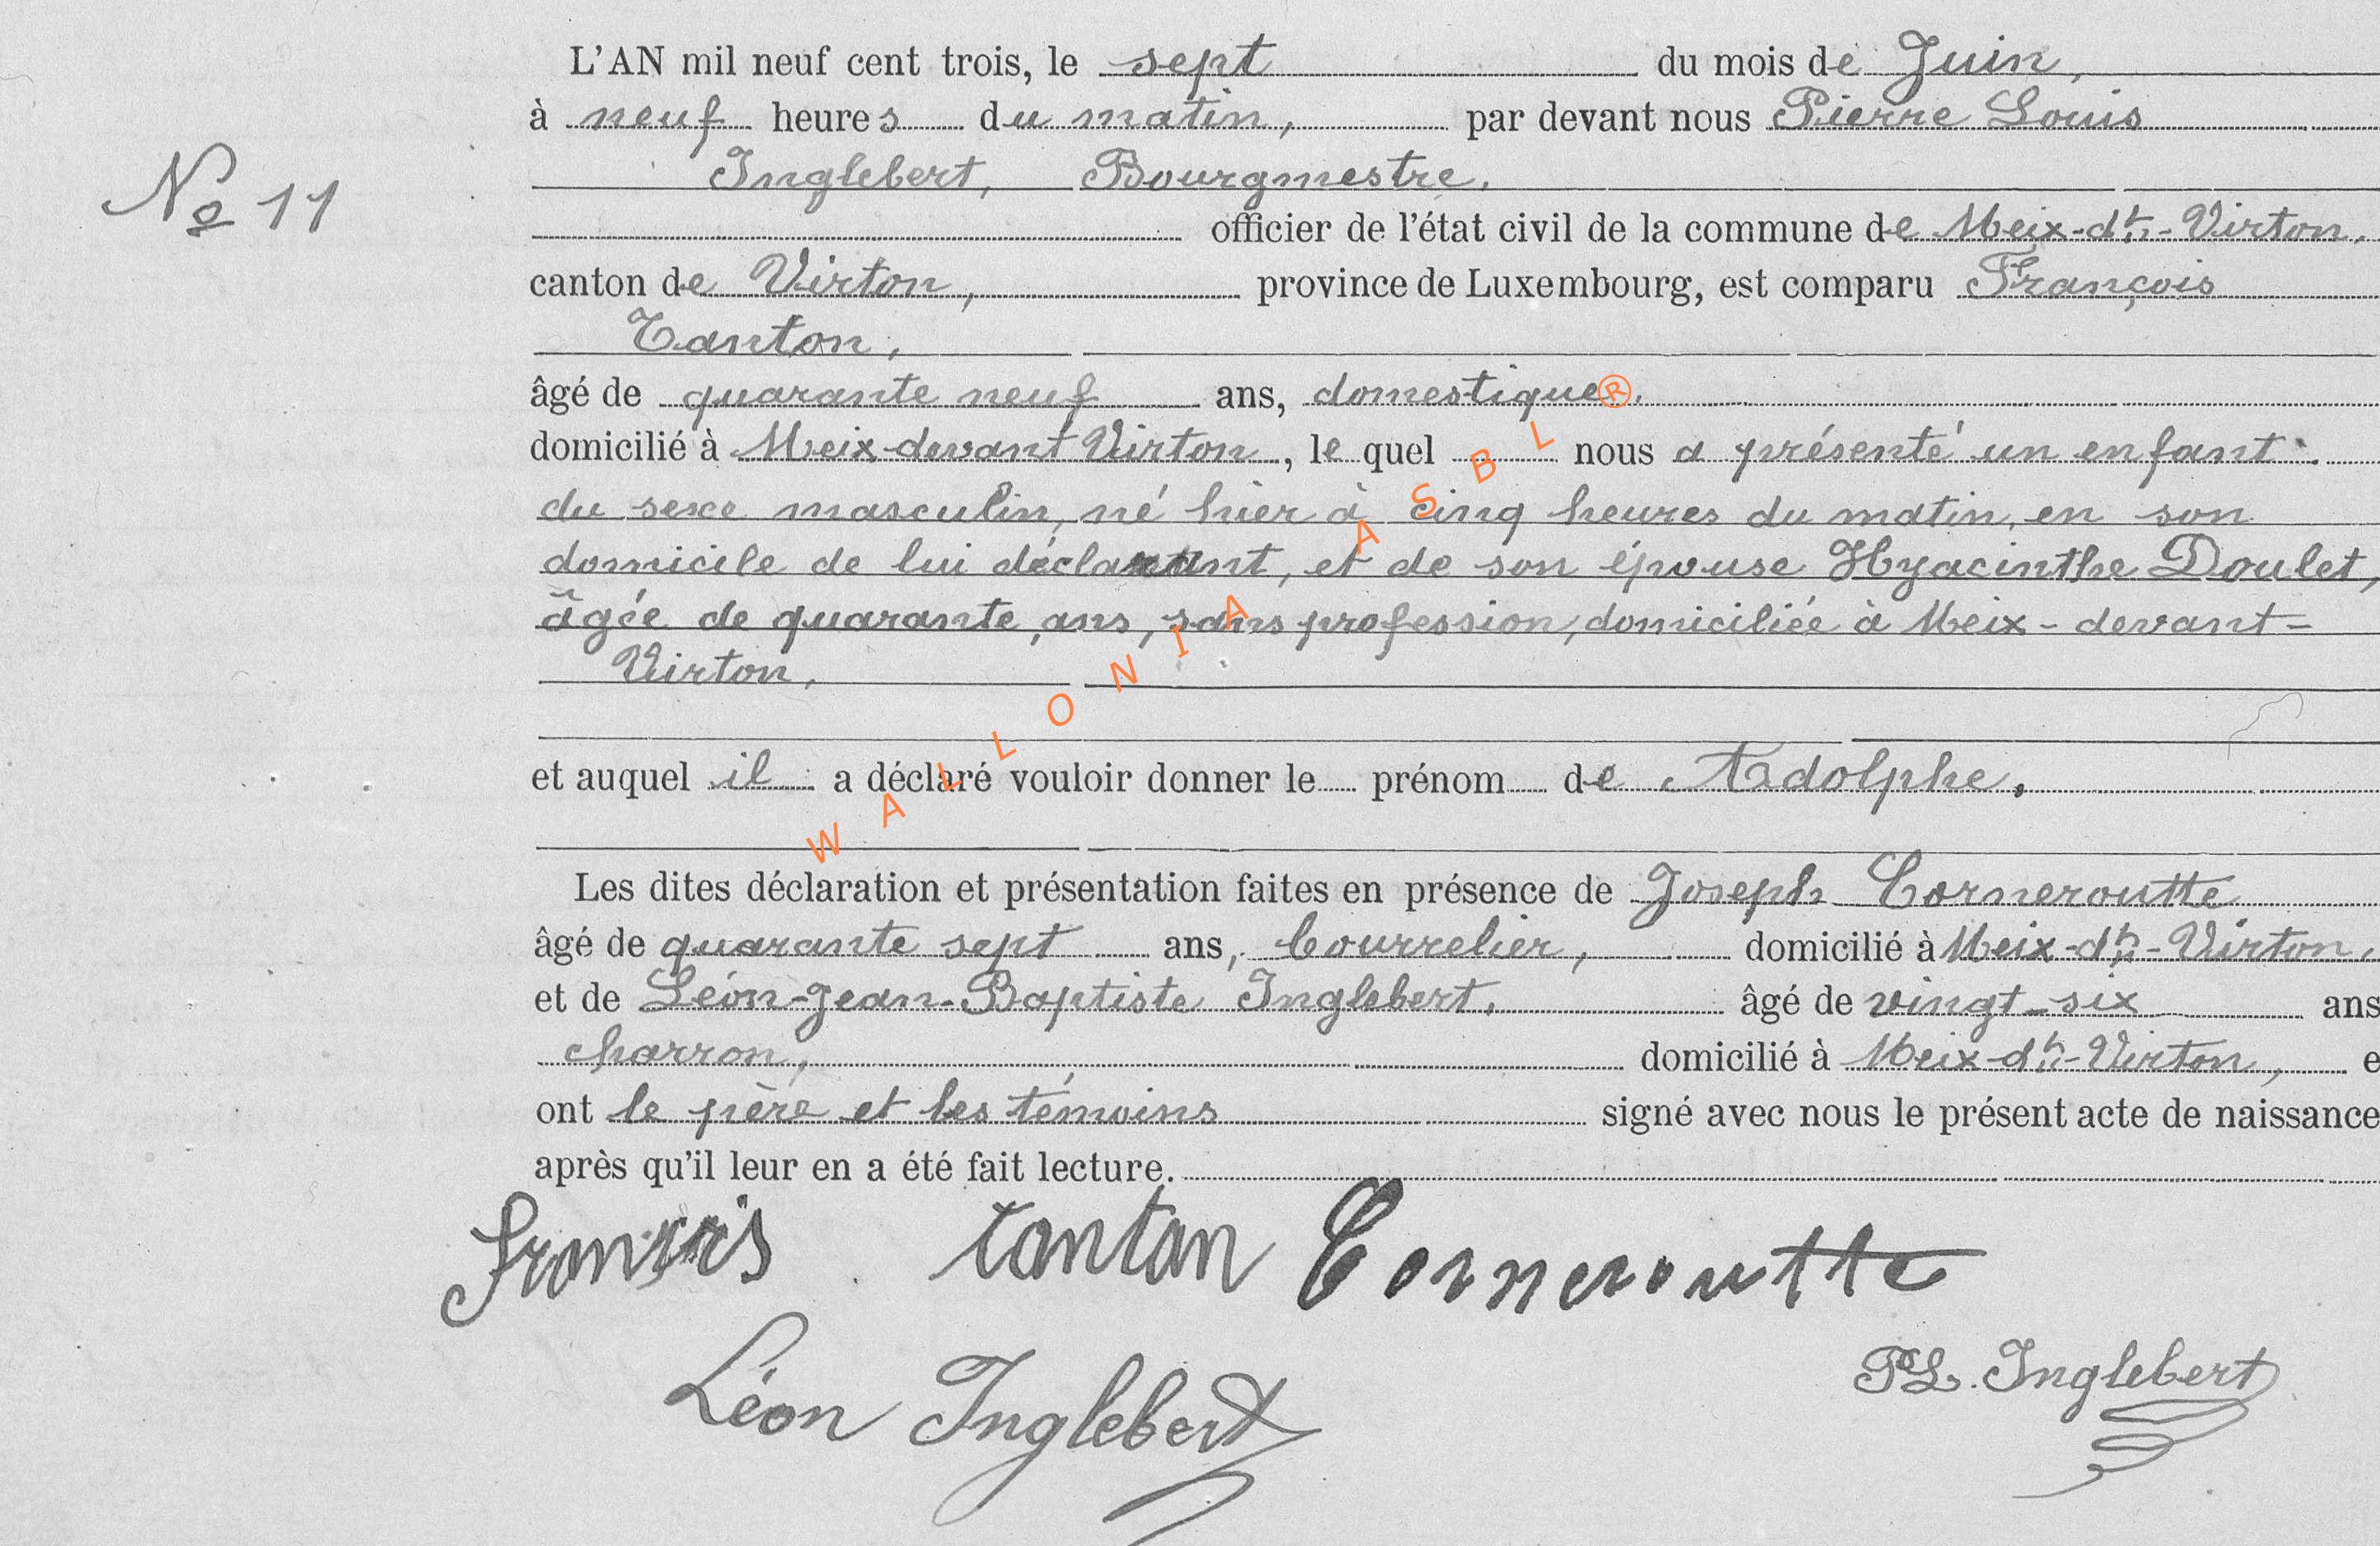 L'AN mil neuf cent trois, le sept du mois de Juin,
à neuf heures du matin, par devant nous Pierre Louis
Inglebert, Bourgmestre.
N° 11
officier de l'état civil de la commune de Meix-dt-Virton,
canton de Virton, province de Luxembourg, est comparu François
Tanton,
âgé de quarante neuf ans, domestique ®.
domicilié à Meix-devant Virton, le quel nous a présenté un enfant
du sexe masculin, né hier à cinq heures du matin, en son
domicile de lui déclarant, et de son épouse Hyacinthe Doulet,
âgée de quarante ans, sans profession, domiciliée à Meix-devant-
Virton.
et auquel il a déclaré vouloir donner le prénom de Adolphe.
WALLONIA ASBL
Les dites déclaration et présentation faites en présence de Joseph Corneroutte
âgé de quarante sept ans, bourrelier, domicilié à Meix-dt-Virton,
et de Léon-Jean-Baptiste Inglebert. âgé de vingt-six ans
charron, domicilié à Meix-dt-Virton, e
ont le père et les témoins signé avec nous le présent acte de naissance
après qu'il leur en a été fait lecture.
François tantan Corneroutte
PL. Inglebert
Léon Inglebert